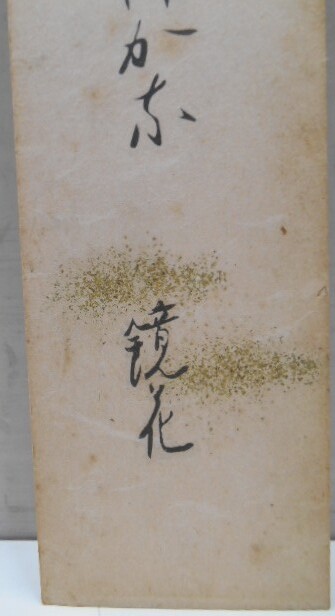 かな
鏡花